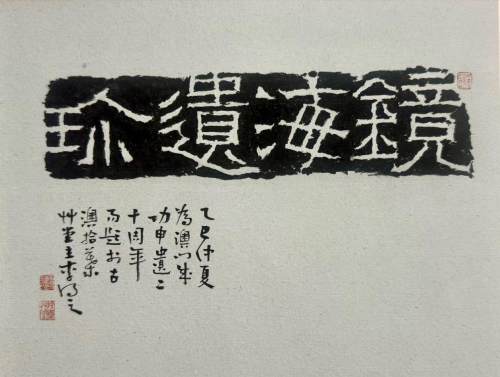 鏡海遺珍
乙巳仲夏
為澳门成
功申遺二
十周年
而題於古
澳拾葉
艸堂主李得之